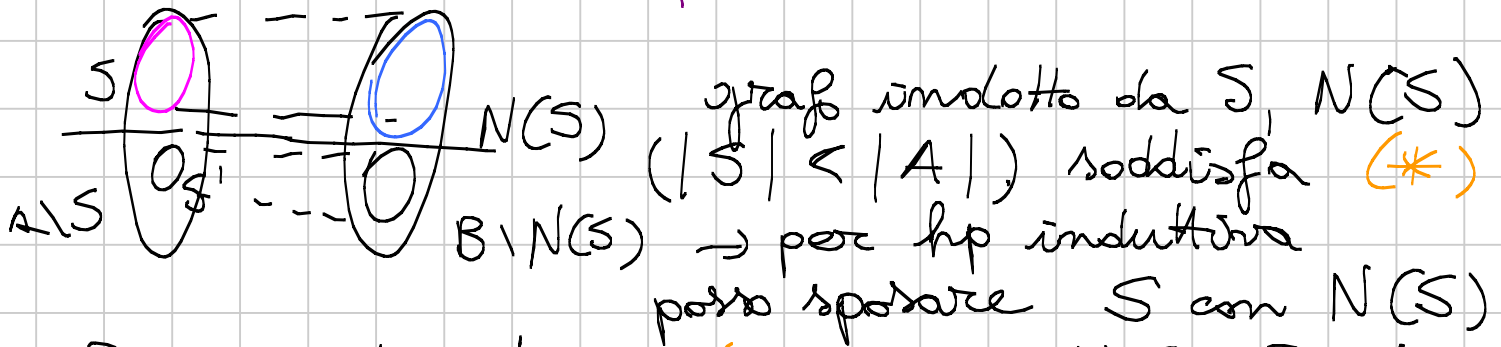 S
grafo indotto da S, N(S)
N(S)
(|S| < |A|) soddisfa (*)
S'
A\S
B\N(S)
→ per hp induttiva
posso sposare S con N(S)